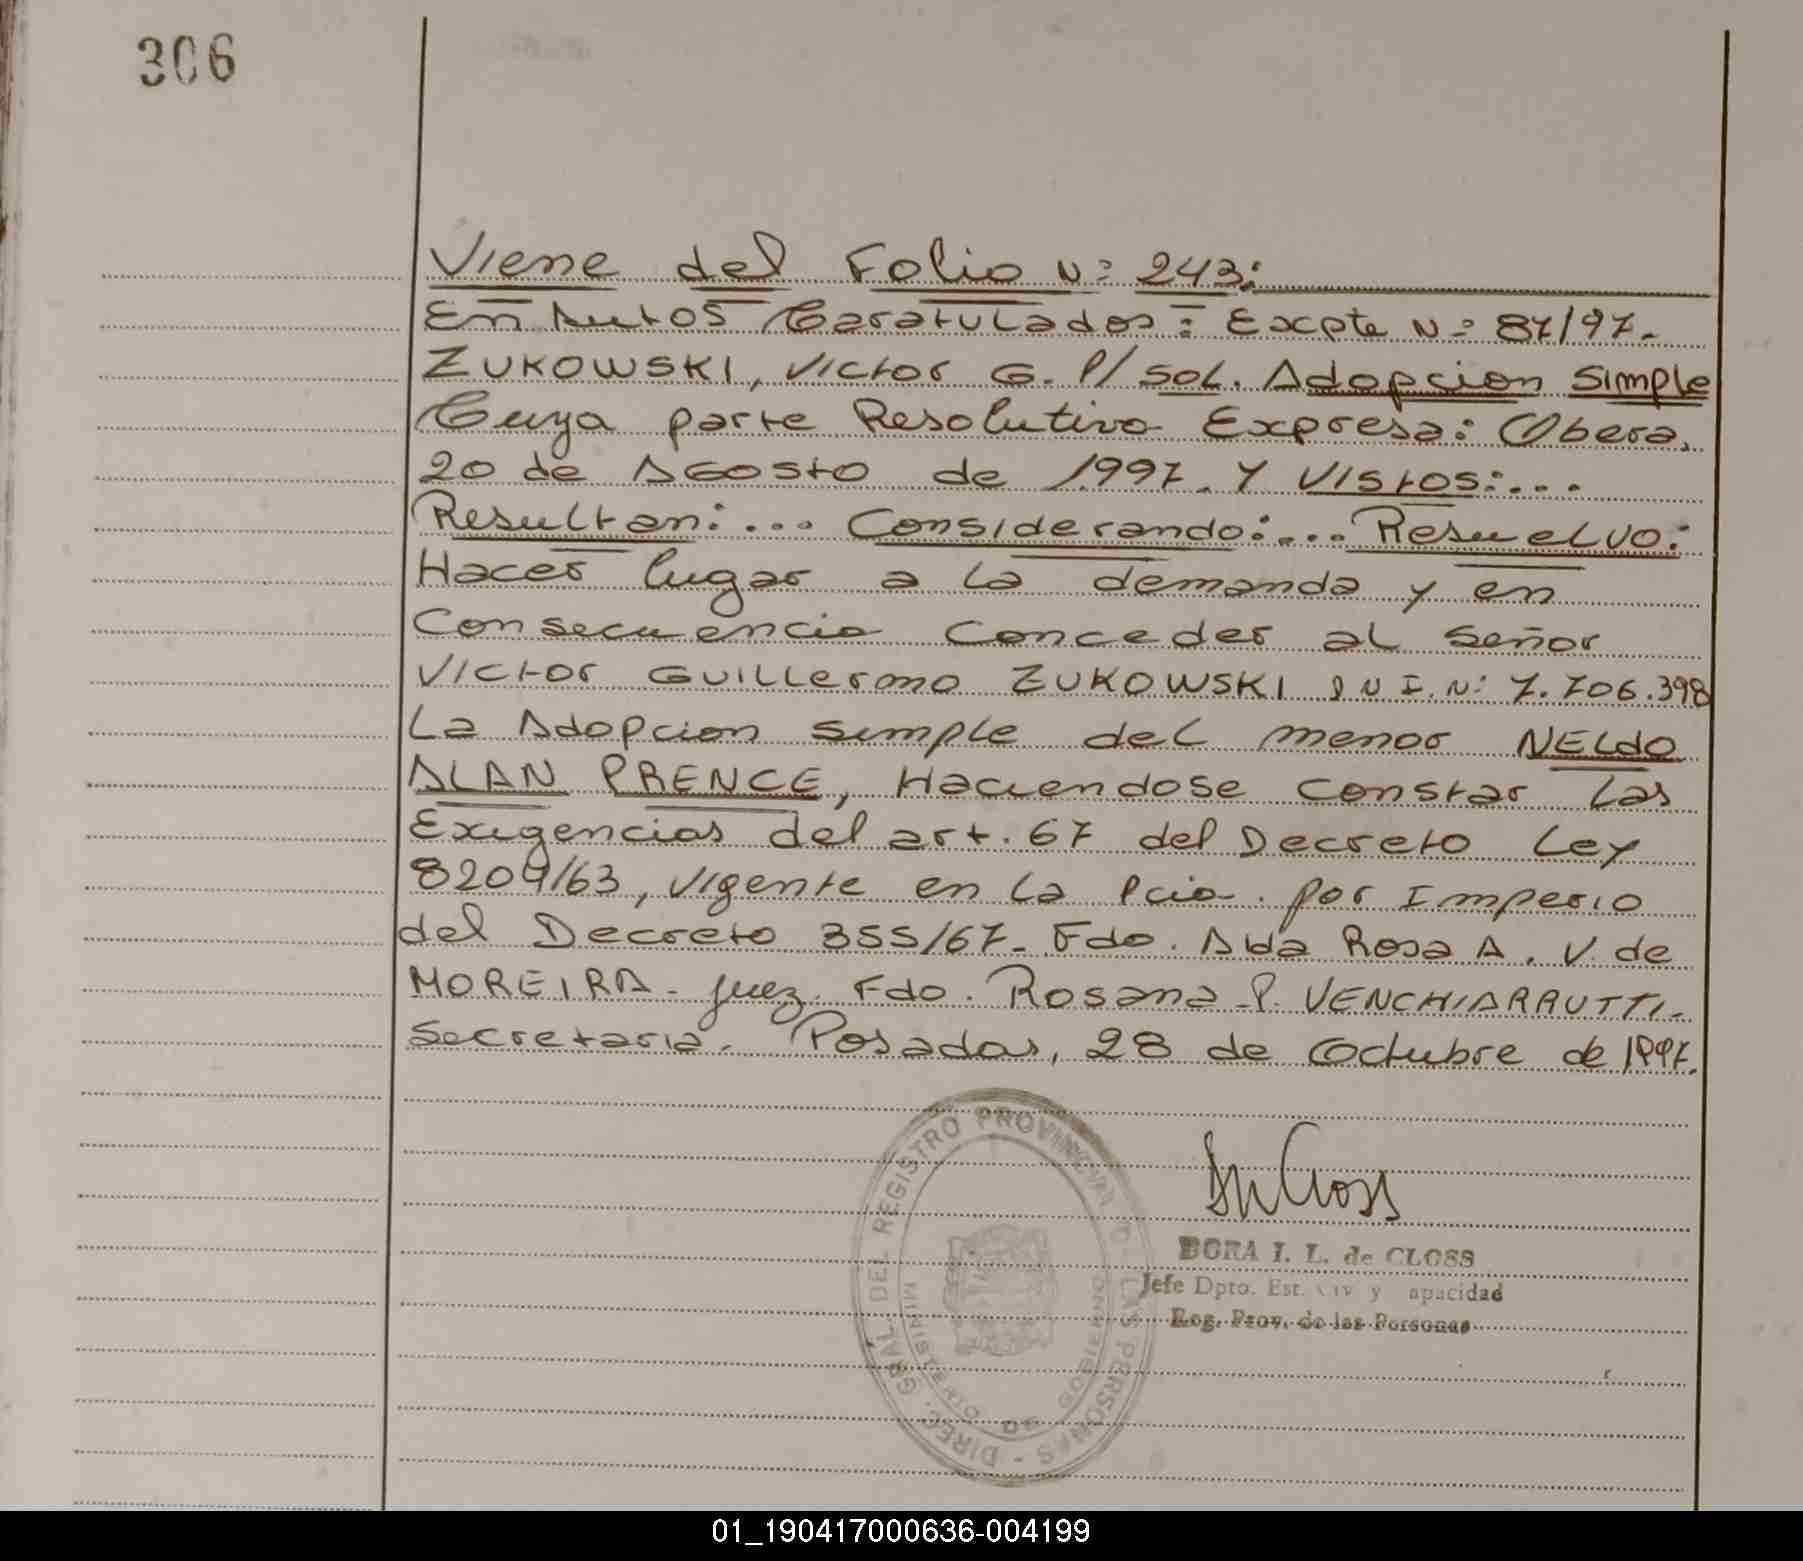 306
Viene del Folio Nº 243:
En Autos Caratulados: Expte Nº 87/97.
ZUKOWSKI, Victor G. P/ Sol. Adopcion Simple
Cuya parte Resolutiva Expresa: Obera,
20 de Agosto de 1997. Y Vistos:...
Resultan:... Considerando:... Resuelvo:
Hacer lugar a la demanda y en
Consecuencia Conceder al Señor
Victor Guillermo ZUKOWSKI D N I. Nº 7.706.398
La Adopcion Simple del menor NELDO
ALAN PRENCE, Haciendose Constar las
Exigencias del art. 67 del Decreto Ley
8204/63, Vigente en la Pcia. por Imperio
del Decreto 355/67. Fdo. Alda Rosa A. V. de
MOREIRA - Juez. Fdo. Rosana P. VENCHIARRUTTI.
Secretaria. Posadas, 28 de Octubre de 1997.
DIREC. GRAL. DEL REGISTRO PROVINCIAL D. LAS PERSONAS -
MINISTERIO DE GOBIERNO
DORA I. L. de CLOSS
Jefe Dpto. Est. Civ y apacidad
Reg. Prov. de las Personas
01_190417000636-004199